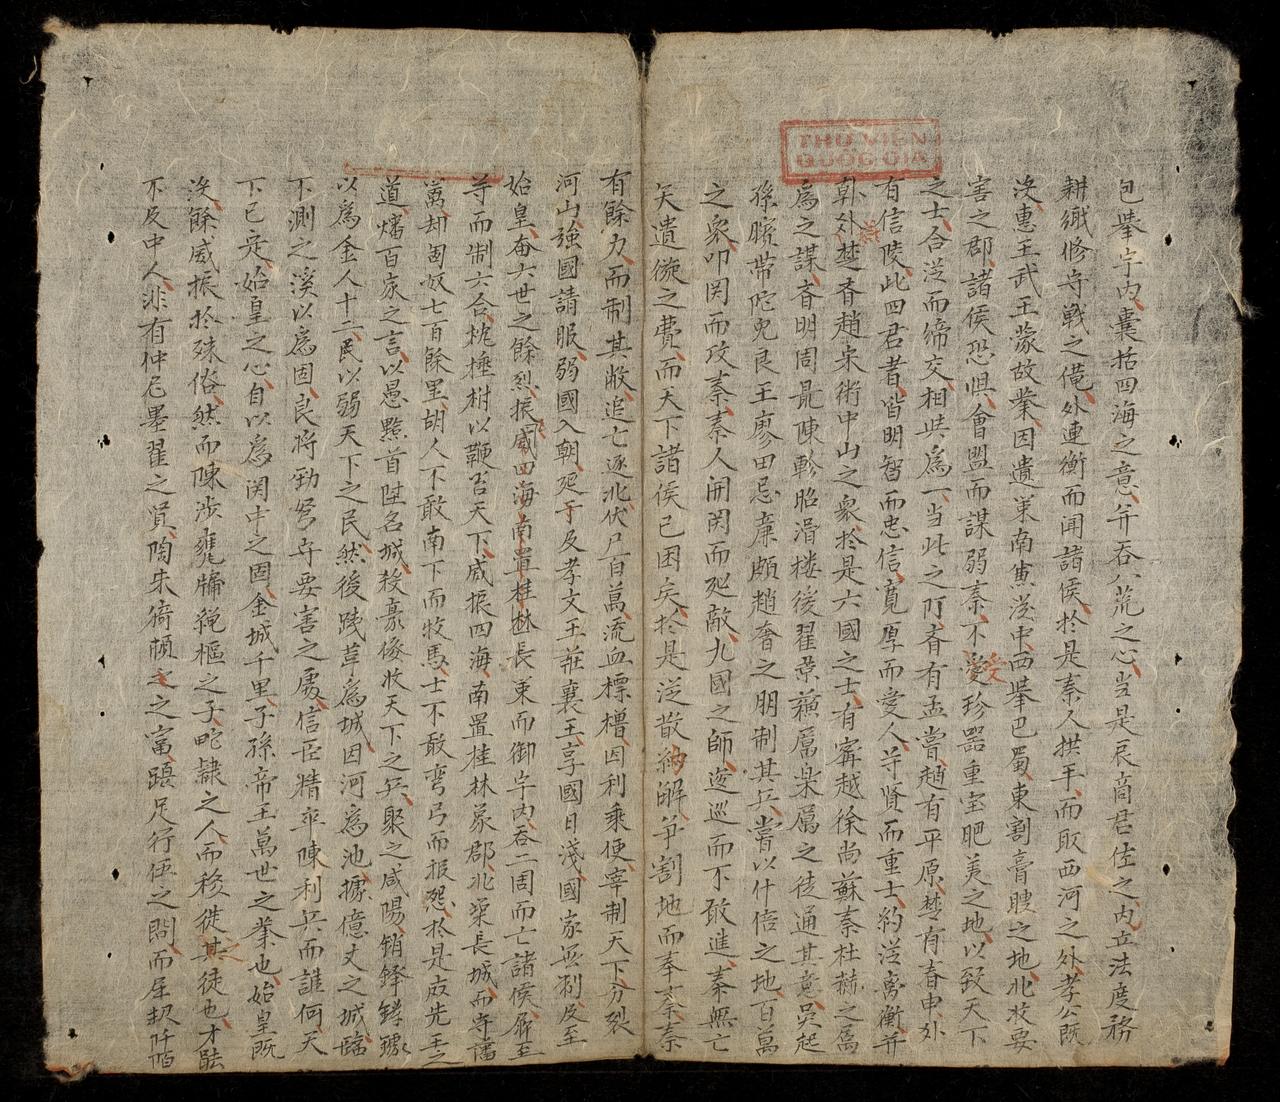 THƯ VIỆN
QUỐC GIA
包舉宇內囊括四海之意并吞八荒之心岂是辰商君佐之內立法度務
耕織修守戰之俻外連衡而闻諸侯扵是秦人拱手而取西河之外孝公既
沒惠王武王蒙故業因遺策南漢中西舉巴蜀東割膏腴之地北收要
害之郡諸侯恐惧會盟而謀弱秦不愛珍器重宝肥美之地以致天下
之士合從而締交相共為一當此之时斉有孟嘗趙有平原楚有春申外
有信陵此四君者皆明智而忠信寬厚而愛人尊賢而重士約從离衡并
韩外楚斉趙宋術中山之衆扵是六國之士有寗越徐尚蘇秦杜赫之属
為之謀斉明周最陳軫昭滑楼後翟景蘓属楽属之徒通其意吳起
孫臏带陀児良王廖田忌廉頗趙奢之朋制其兵嘗以什倍之地百萬
之衆叩関而攻秦秦人開関而延敵九國之師逡巡而不敢進秦無亡
矢遺鏃之費而天下諸侯已困矣扵是從散約解争割地而奉秦秦
有餘力而制其敝追亡逐北伏尸百萬流血標櫓因利乘便宰制天下分裂
河山強國請服弱國入朝延于及孝文王莊襄王享國日淺國家無刺及至
始皇奋六世之餘烈振威四海南置桂林長策而御宇內吞二周而亡諸侯屏至
尊而制六合枕捶柎以鞭笞天下威振四海南置桂林象郡北築長城而守藩
萬却匈奴七百餘里胡人下敢南下而牧馬士不敢弯弓而报怨扵是废先王之
道燔百家之言以愚黔首堕名城殺豪傑收天下之兵聚之咸陽銷鋒鑄鐻
以為金人十二民以弱天下之民然後践華為城因河為池據億丈之城臨
不測之溪以為固良将劲弩守要害之處信臣精卒陳利兵而誰何天
下已定始皇之心自以為関中之固金城千里子孫帝王萬世之業也始皇既
沒餘威振扵殊俗然而陳涉甕牖繩樞之子甿隷之人而移徙其徒也才能
不反中人非有仲尼墨翟之賢陶朱猗頓之之富蹑足行伍之間而崛起阡陌